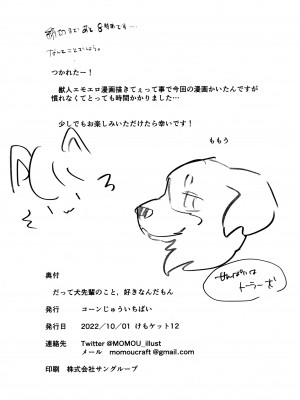 締切まであと8時間です…
なんてことでしょう。
つかれたー！
獣人エモエロ漫画描きてぇって事で今回の漫画かいたんですが
慣れなくてとっても時間かかりました…
少しでもお楽しみいただけたら幸いです！
ももう
せんぱいは
奥付
だって犬先輩のこと，好きなんだもん
発行 コーンじゅういちばい
発行日 2022/10/01 けもケット12
連絡先 Twitter @MOMOU_illust
メール momoucraft@gmail.com
印刷 株式会社サングループ